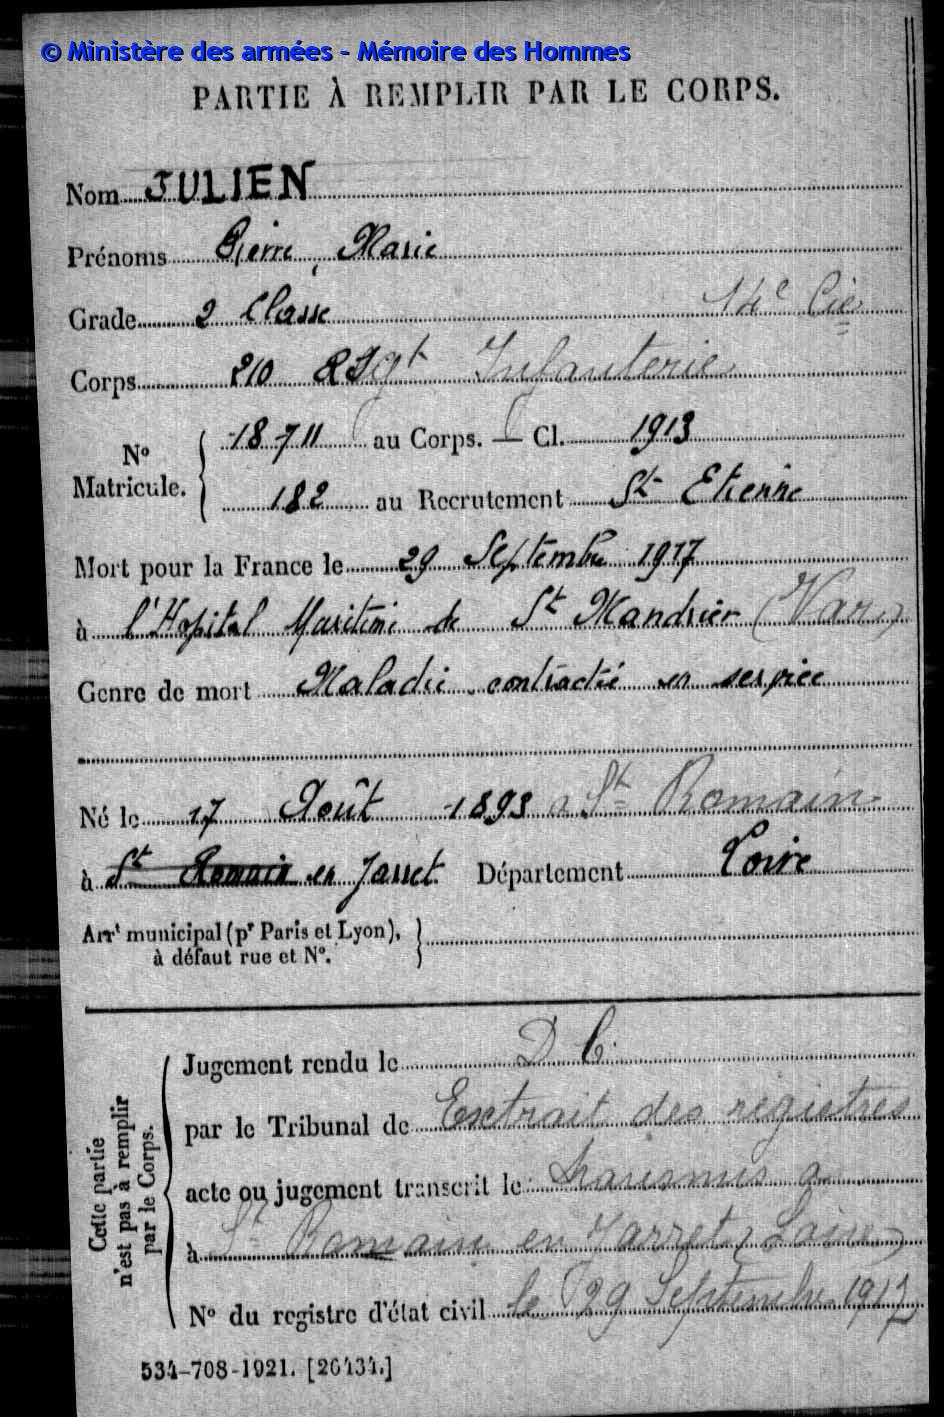 © Ministère des armées - Mémoire des Hommes
PARTIE À REMPLIR PAR LE CORPS.
Nom JULIEN
Prénoms Pierre, Marie
Grade 2 Classe 14e Cie
Corps 210 RIgt Infanterie
No Matricule. { 18711 au Corps. — Cl. 1913
182 au Recrutement St Etienne
Mort pour la France le 29 Septembre 1917
à l'Hopital Maritime de St Mandrier (Var)
Genre de mort Maladie contractée en service
Né le 17 Août 1893 a St Romain
à St Romain en Jarret Département Loire
Arrt municipal (pr Paris et Lyon), }
à défaut rue et No.
Cette partie n'est pas à remplir par le Corps.
Jugement rendu le D C.
par le Tribunal de Extrait des registres
acte ou jugement transcrit le transmis a
à St Romain en Jarret (Loire)
No du registre d'état civil le 29 Septembre 1917
534-708-1921. [26434.]